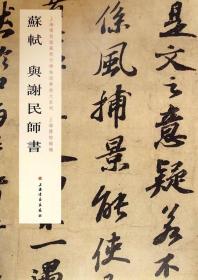 蘇軾 與謝民師書
上海書畫出版社
是文之意疑若不
係風捕景能使